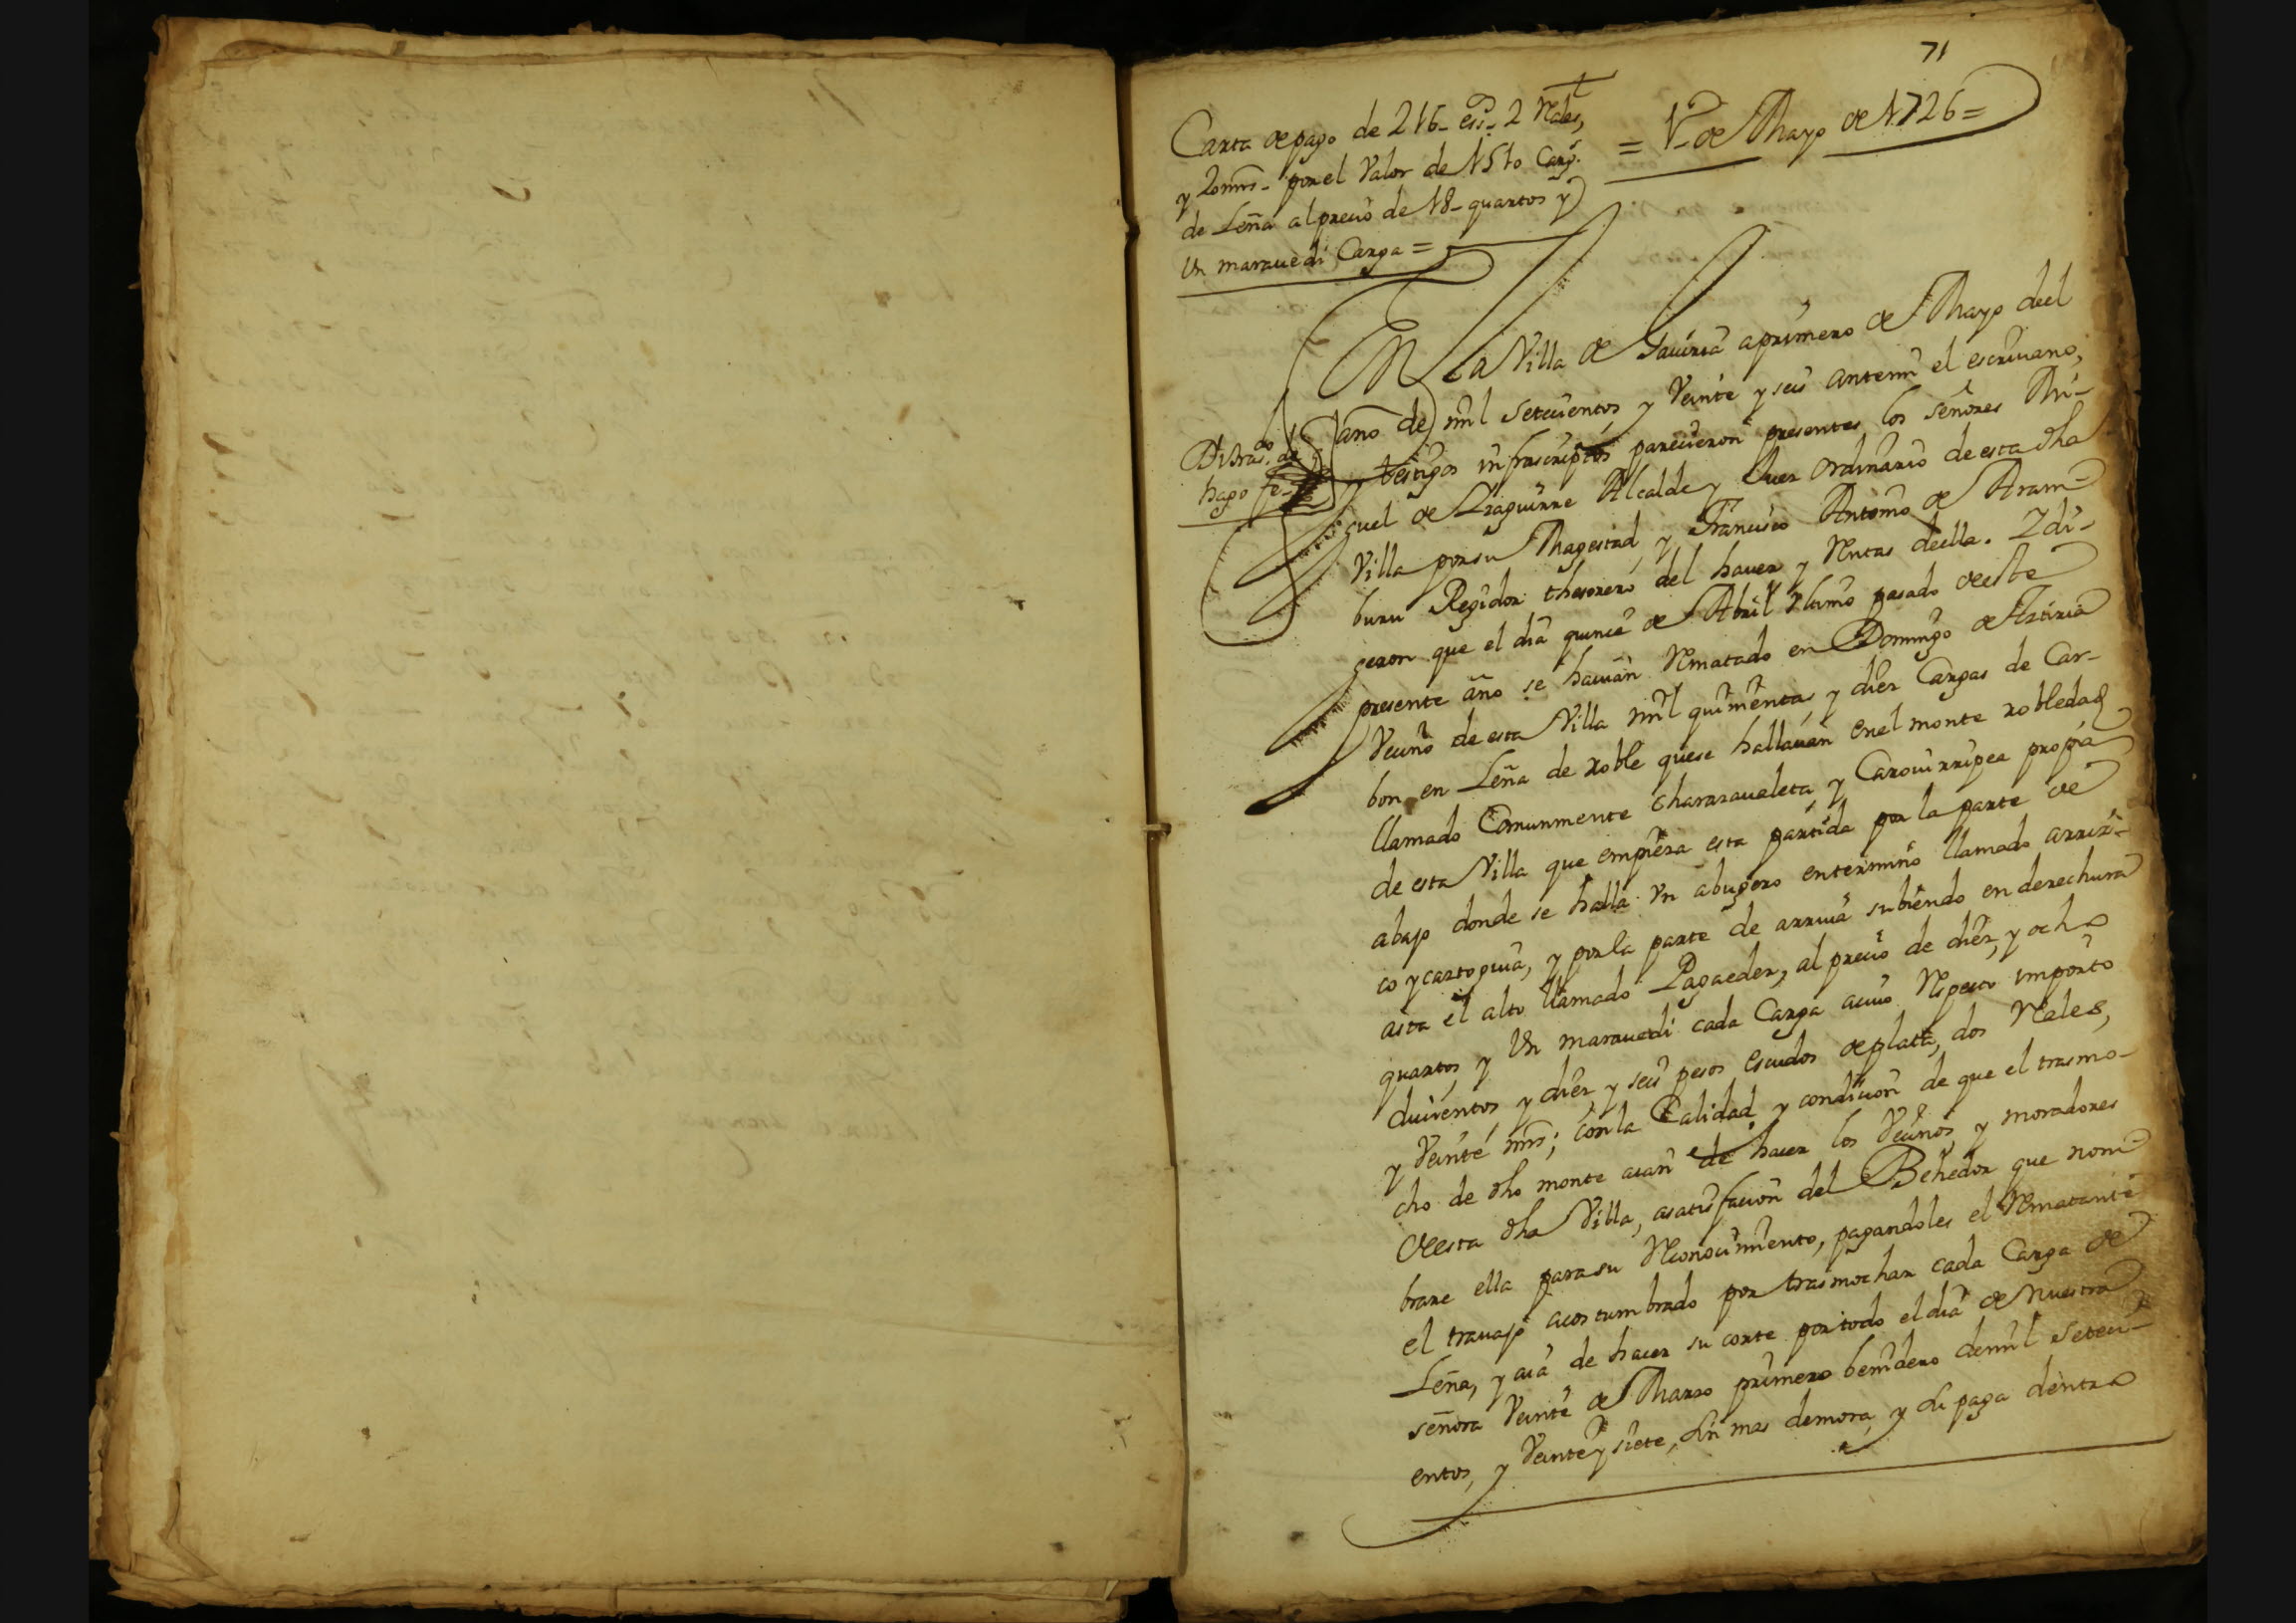 71
Carta de pago de 216 - ess.s 2 Rales,
y 20 mrs - por el Valor de 1510 Carg.s
de Leña al precio de 18 - quartos y
Un marauedi Carga =
= 1.o de Mayo de 1726 =
En La Villa de Gauiria a primero de Mayo deel
año de mil Setecientos, y Veinte y seis antemi el escriuano,
y testigos infrascriptos parecieron presentes los señores Mi-
guel de Lizaguirre Alcalde y Juez Ordinario de esta dha
Villa por su Magestad, y Francisco Antonio de Aram-
buru Regidor thesorero del hauer y Rentas deella. I di-
geron que el dia quince de Abril Vltimo pasado deeste
presente año se hauian Rematado en Domingo de Aztiria
Vecino de esta Villa mil quinientas, y diez Cargas de Car-
bon en Leña de roble quese hallauan enel monte robledal
llamado Comunmente charazaueleta, y Carouirripea propia
de esta Villa que empieza esta partida por la parte de
abajo donde se halla Vn abugero entermino llamado arriri-
co ycartoguia, y por la parte de arriua subiendo en derechura
asta el alto llamado Pagaeder, al precio de diez, y ocho
quartos, y Un marauedi cada Carga acuio Respecto importo
ducientos, y diez, y seis pesos escudos deplata, dos Rales,
y Veinte mrs; conla Calidad, y condicion de que el trasmo-
cho de dho monte aian de hacer los Vecinos, y moradores
deesta dha Villa, asatisfacion del Behedor que nom-
brare ella parasu Reconocimiento, pagandoles el Rematante
el trauajo acostumbrado por trasmochar cada Carga de
Leña, y aia de hacer su corte portodo eldia de Nuestra
señora Veinte de Marzo primero benidero demil Seteci-
entos, y Veinte y siete, sin mas demora, y di paga dentro
hago fe -